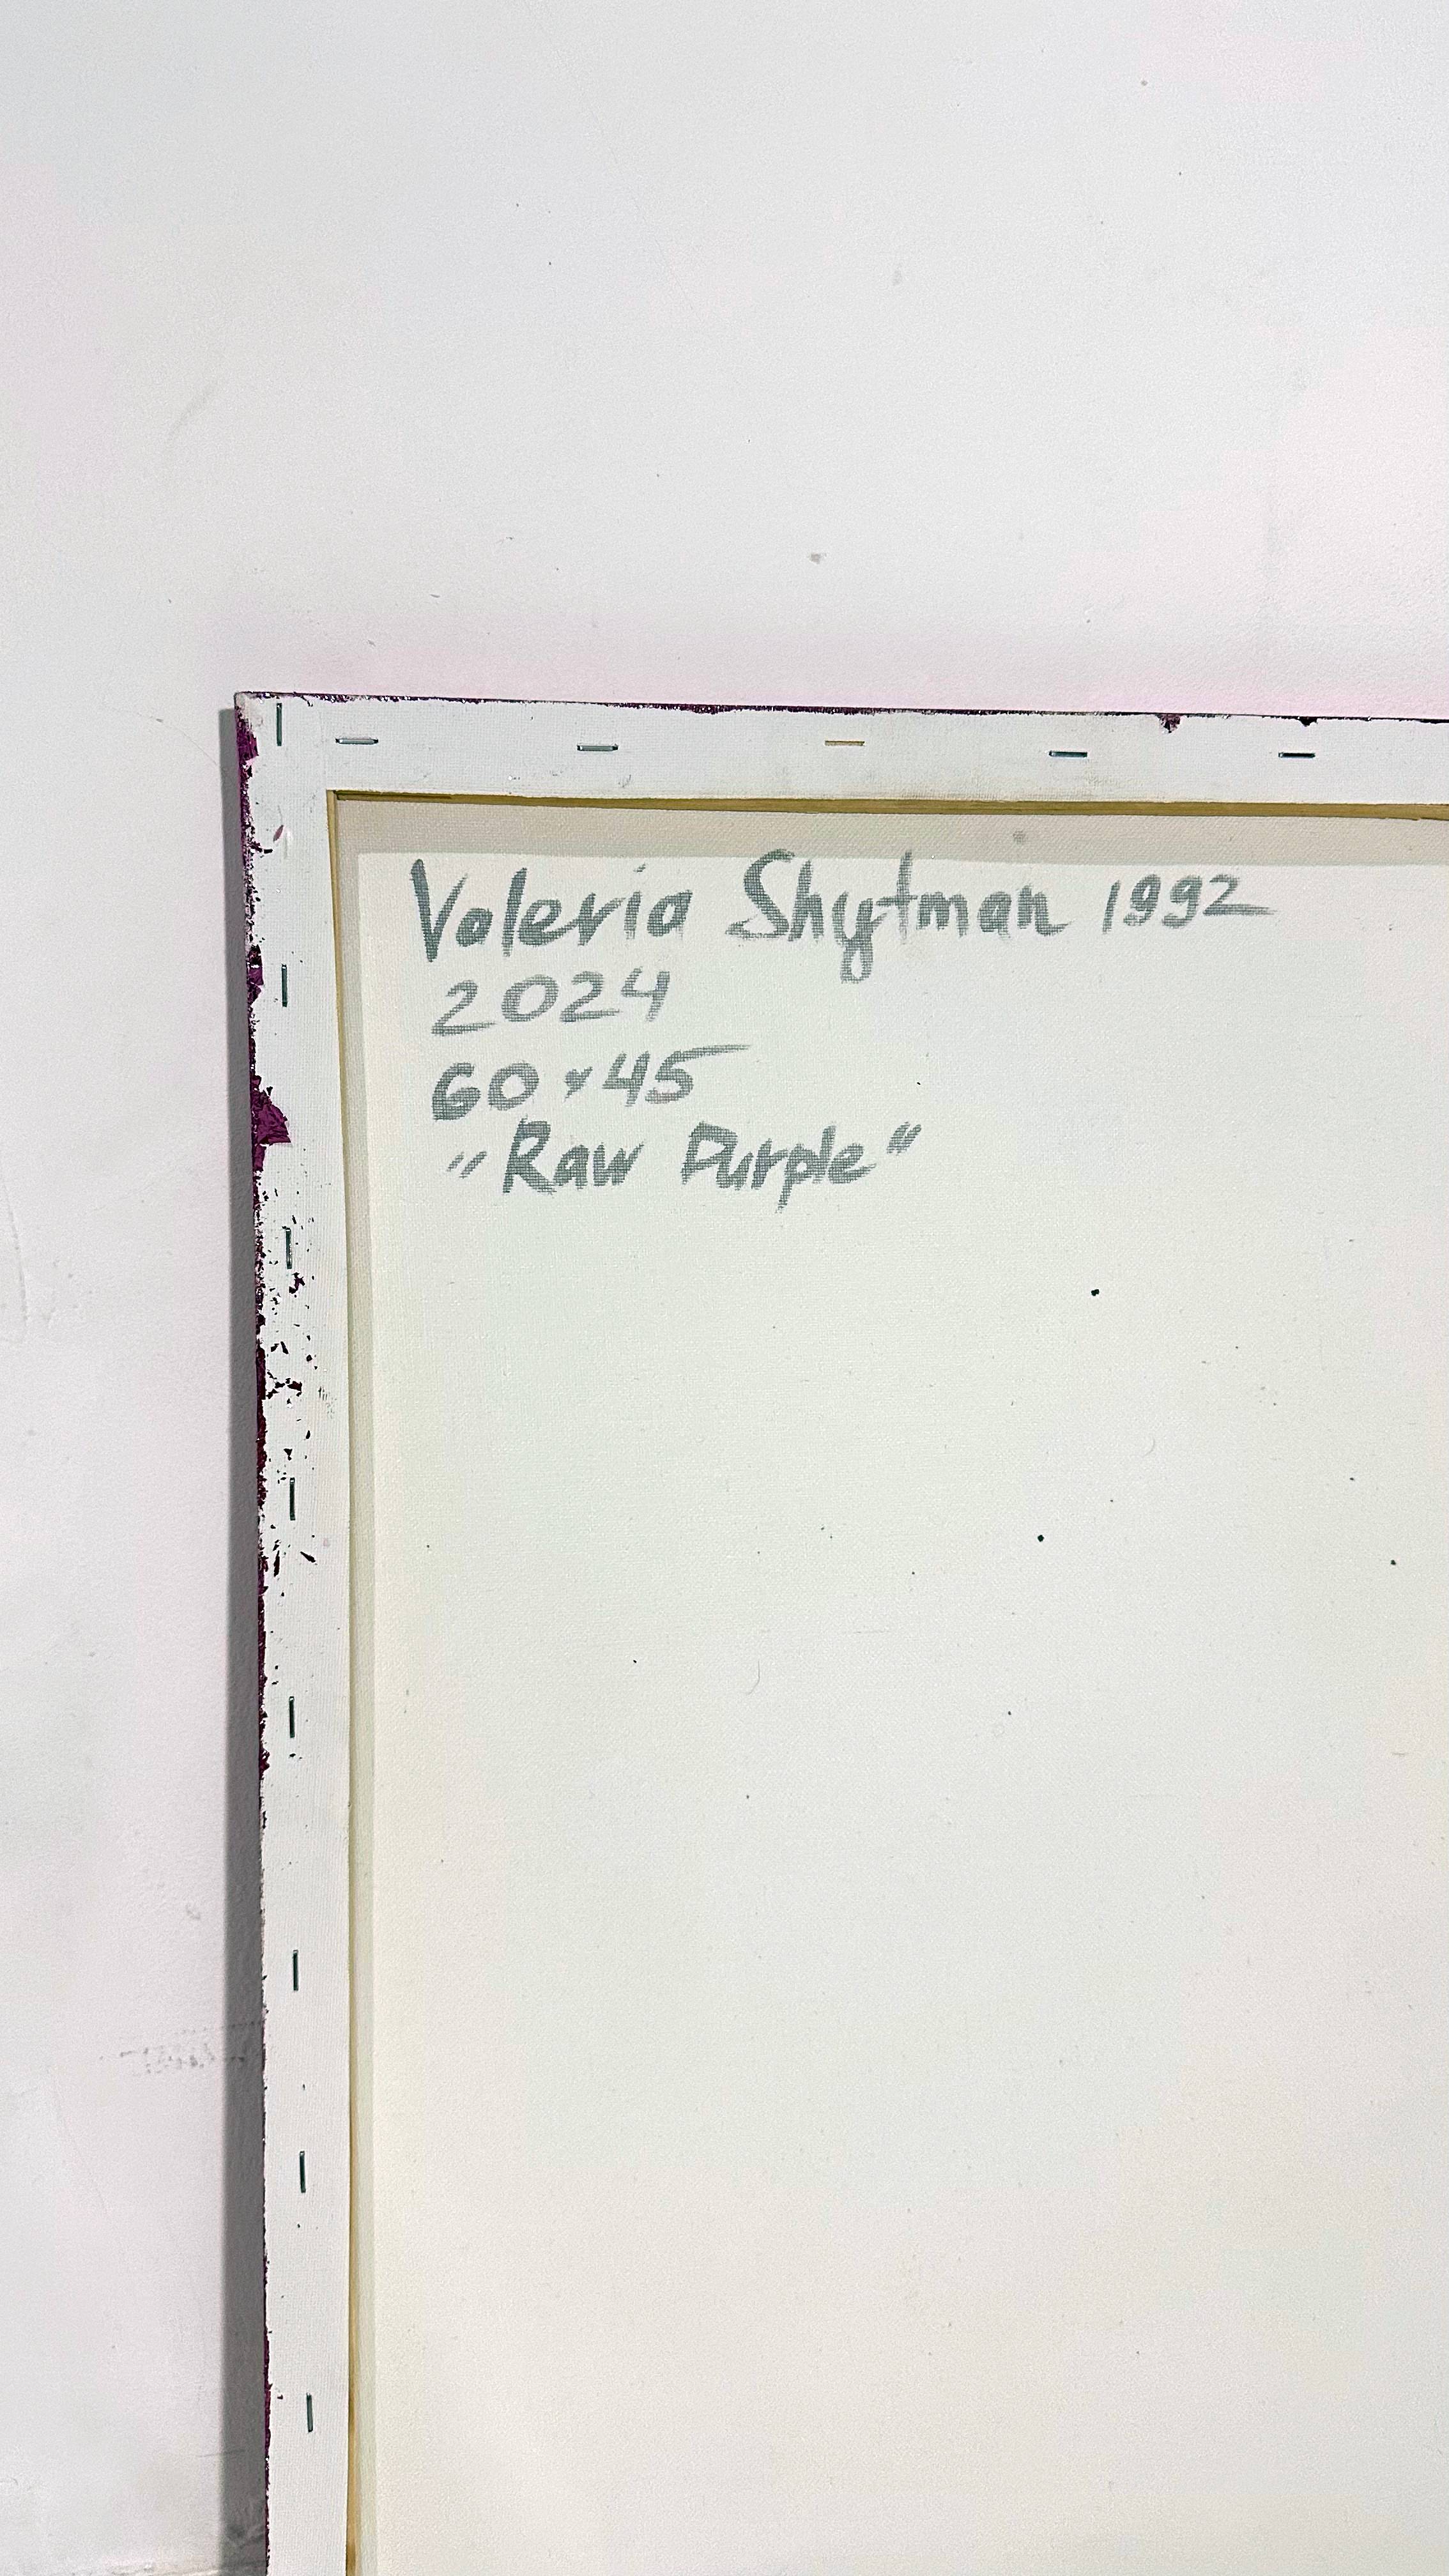 Valeria Shytman 1992
2024
60×45
"Raw Purple"